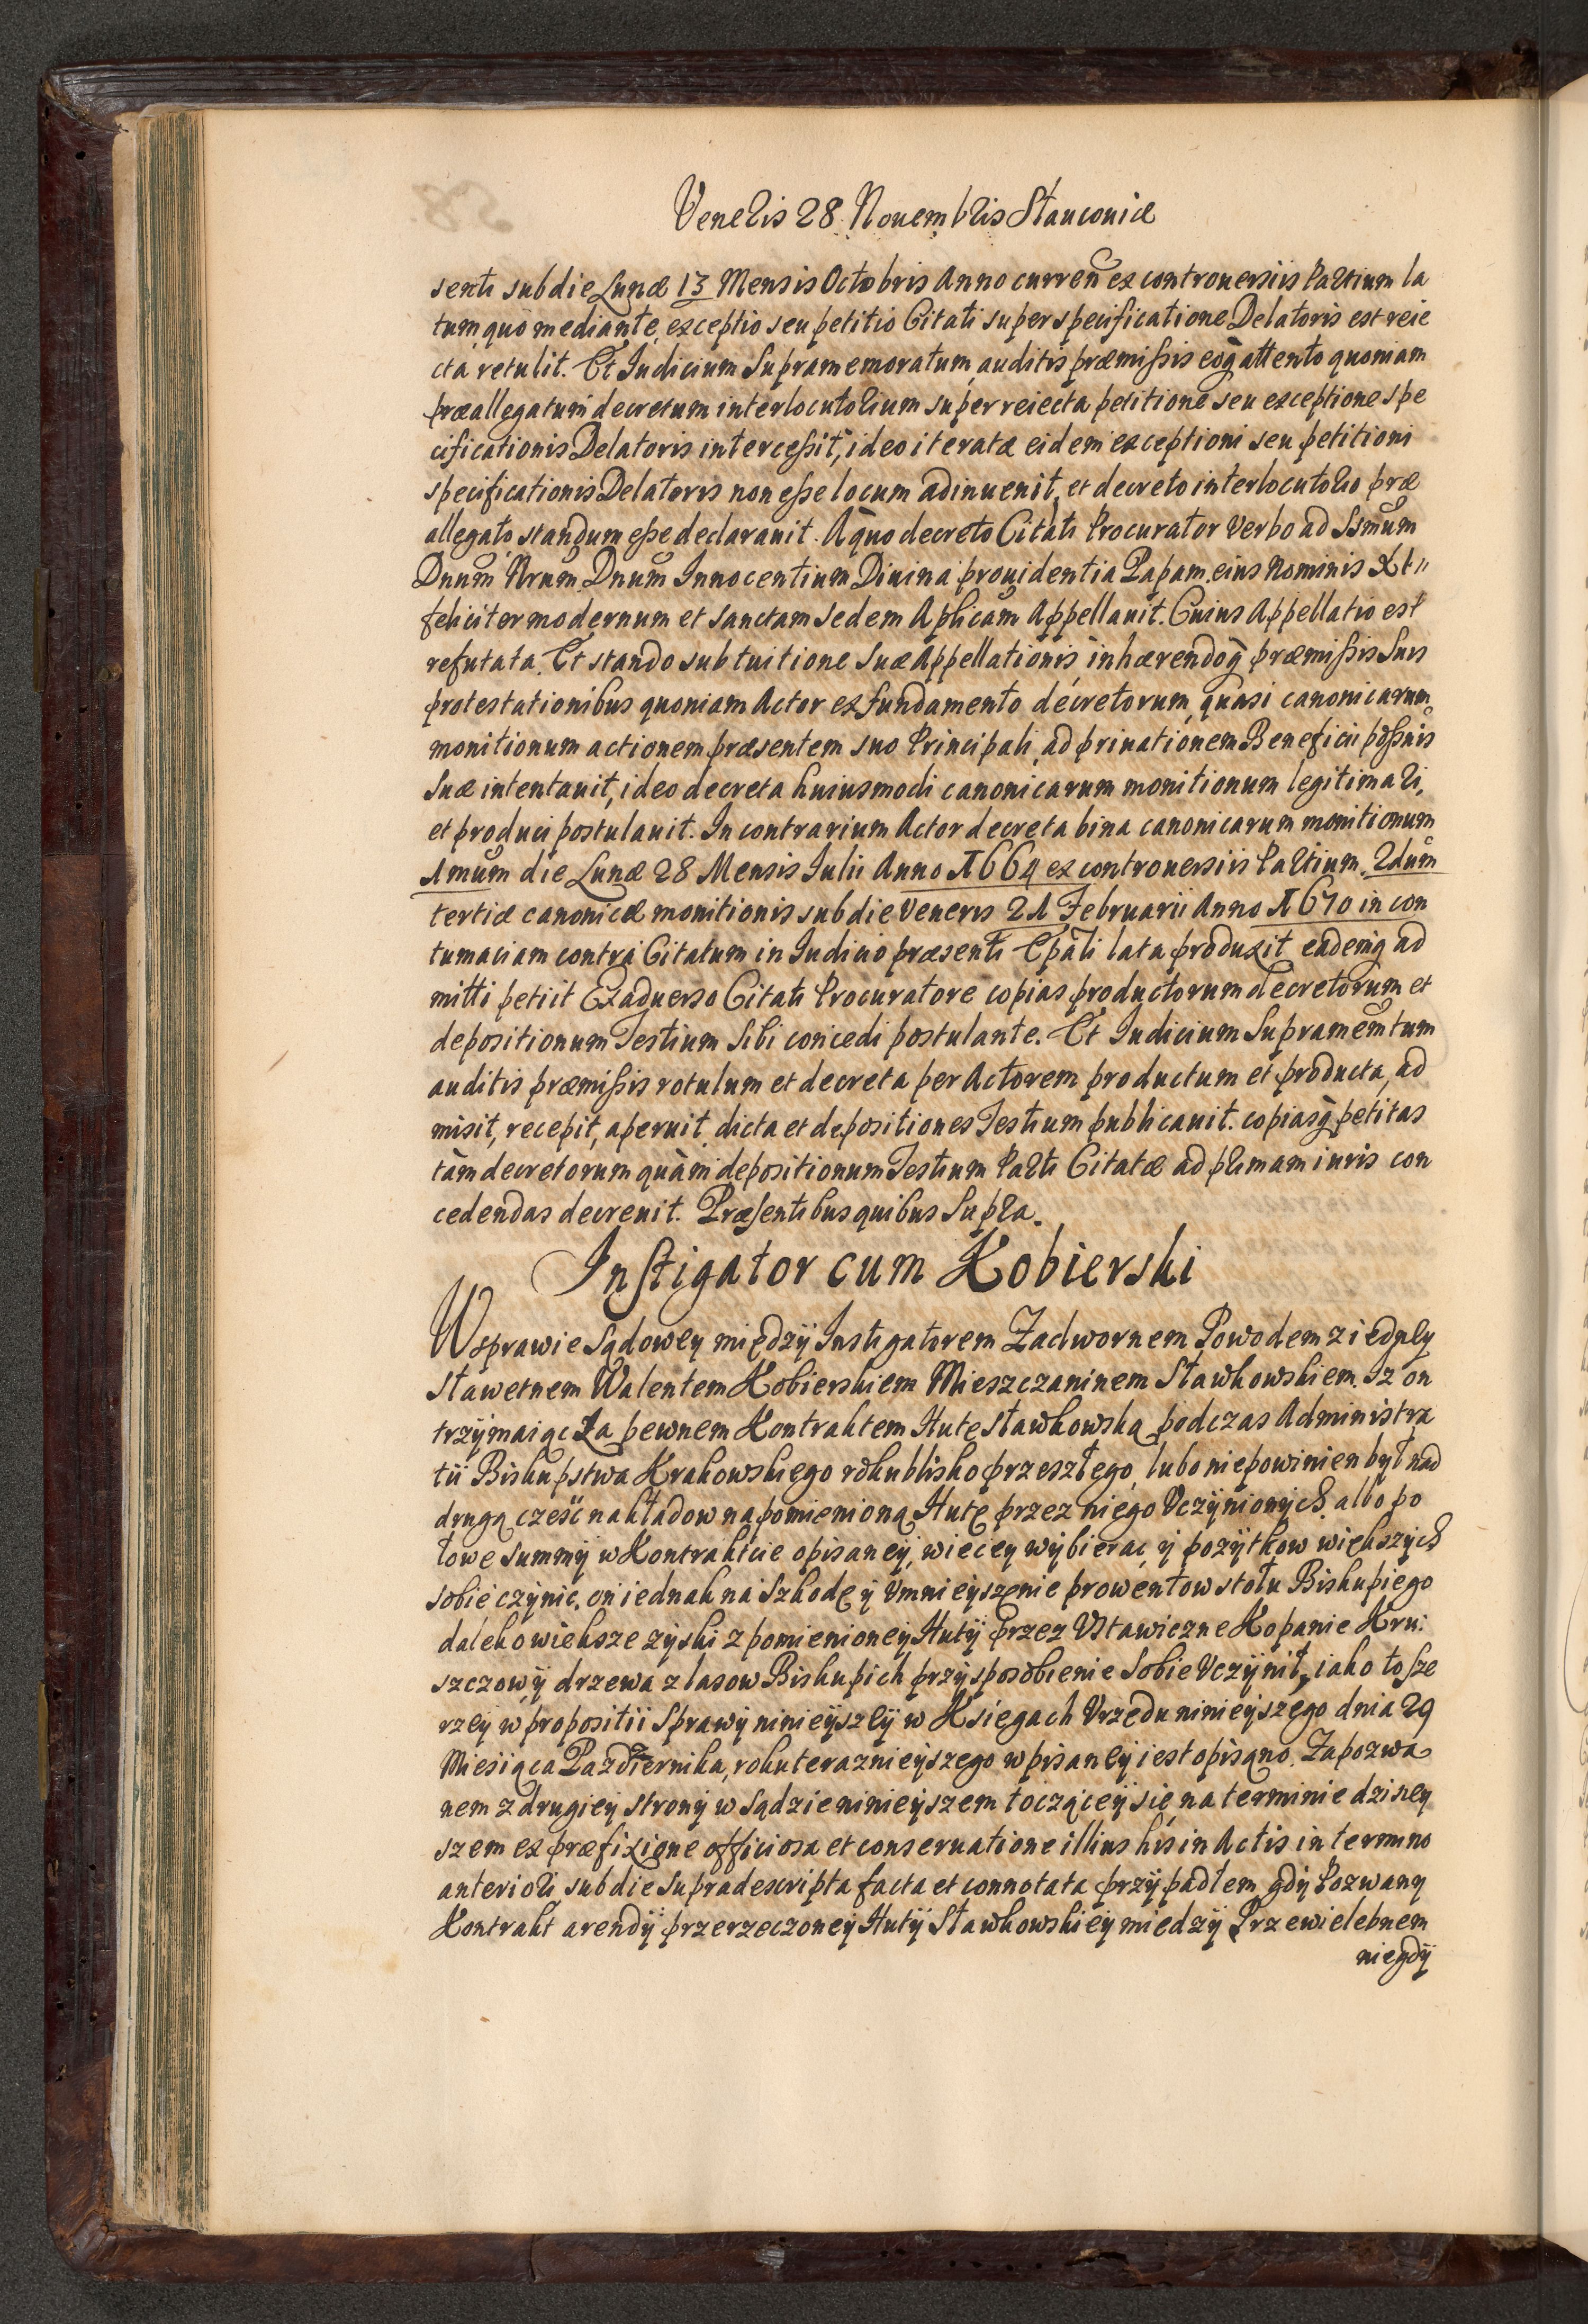 Veneris 28 Nouembris Slauconiæ
senti sub die Lunæ 13 Mensis Octobris Anno curren̄ ex controuersiis Partium la
tum, quo mediante, exceptio seu petitio Citati super specificatione Delatoris est reie
cta retulit. Et Iudicium Supramemoratum, auditis præmissis eoq̀ attento quoniam
præallegatum decretum interlocutorium super reiecta petitione seu exceptione spe
cificationis Delatoris intercessit, ideo iteratæ eidem exceptioni seu petitioni
specificationis Delatoris non esse locum adinuenit, et decreto interlocutorio præ
allegato standum esse declarauit. A quo decreto Citati Procurator verbo ad Ssmum
Dnum Nrum Dnum Innocentium Diuina prouidentia Papam eius Nominis XI
feliciter modernum et sanctam sedem Aplicam Appellauit. Cuius Appellatio est
refutata. Et stando sub tuitione suæ Appellationis inhærendoq̀ præmissis Suis
protestationibus quoniam Actor ex fundamento decretorum, quasi canonicarum
monitionum actionem præsentem suo Principali, ad priuationem Beneficii possnis
Suæ intentauit, ideo decreta huiusmodi canonicarum monitionum legitimari,
et produci postulauit. In contrarium Actor decreta bina canonicarum monitionum
1mum die Lunæ 28 Mensis Iulii Anno 1664 ex controuersiis Partium. 2dum
tertiæ canonicæ monitionis sub die Veneris 21 Februarii Anno 1670 in con
tumaciam contra Citatum in Iudicio præsenti Epali lata produxit eademq̀ ad
mitti petiit Ex aduerso Citati Procuratore copias productorum decretorum et
depositionum Testium Sibi concedi postulante. Et Iudicium Supramemtum
auditis præmissis rotulum et decreta per Actorem productum et producta, ad
misit, recepit, aperuit, dicta et depositiones Testium publicauit. copiasq̀ petitas
tàm decretorum quàm depositionum Testium Parti Citatæ ad primam iuris con
cedendas decreuit. Præsentibus quibus Supra.
Instigator cum Kobierski
W sprawie Sądowey międzÿ Instigatorem Zadwornem Powodem z iedney
Sławetnem Walentem Kobierskiem Mieszczaninem Sławkowskiem. Jz on
trzÿmaiąc Za pewnem Kontraktem Hute Sławkowską podczas Administra
tii Biskupstwa Krakowskiego roku blisko przeszłego, lubo niepowinien był nad
drugą cześć nakładow na pomienioną Hutę przez niego Vczÿnionÿch albo po
łowe summÿ w Kontrakcie opisaneÿ, wiecey wÿbierac ÿ pozÿtkow wiekszÿch
sobie czÿnic, on iednak na Szkodę ÿ Vmnieÿszenie prowentow stołu Biskupiego
daleko wieksze zyski z pomienioneÿ Hutÿ przez Vstawiczne Kopanie Kru:
szczow ÿ drzewa z lasow Biskupich przÿsposobienie Sobie Vczÿnił, iako to sze
rzeÿ w propositii Sprawÿ ninieÿszeÿ w Ksiegach Vrzedu ninieÿszego dnia 29
Miesiąca Pazdziernika, roku teraznieÿszego wpisaneÿ iest opisano. Zapozwa
nem z drugieÿ stronÿ w Sądzie ninieÿszem toczącеÿ sie, na terminie dzisiey
szem ex præfixione officiosa et conseruatione illius his in Actis in termino
anteriori sub die supradescripta facta et connotata przÿpadłem, gdÿ Pozwanÿ
Kontrakt arendÿ przerzeczoneÿ Hutÿ Sławkowskieÿ miedzÿ Przewielebnem
niegdÿ